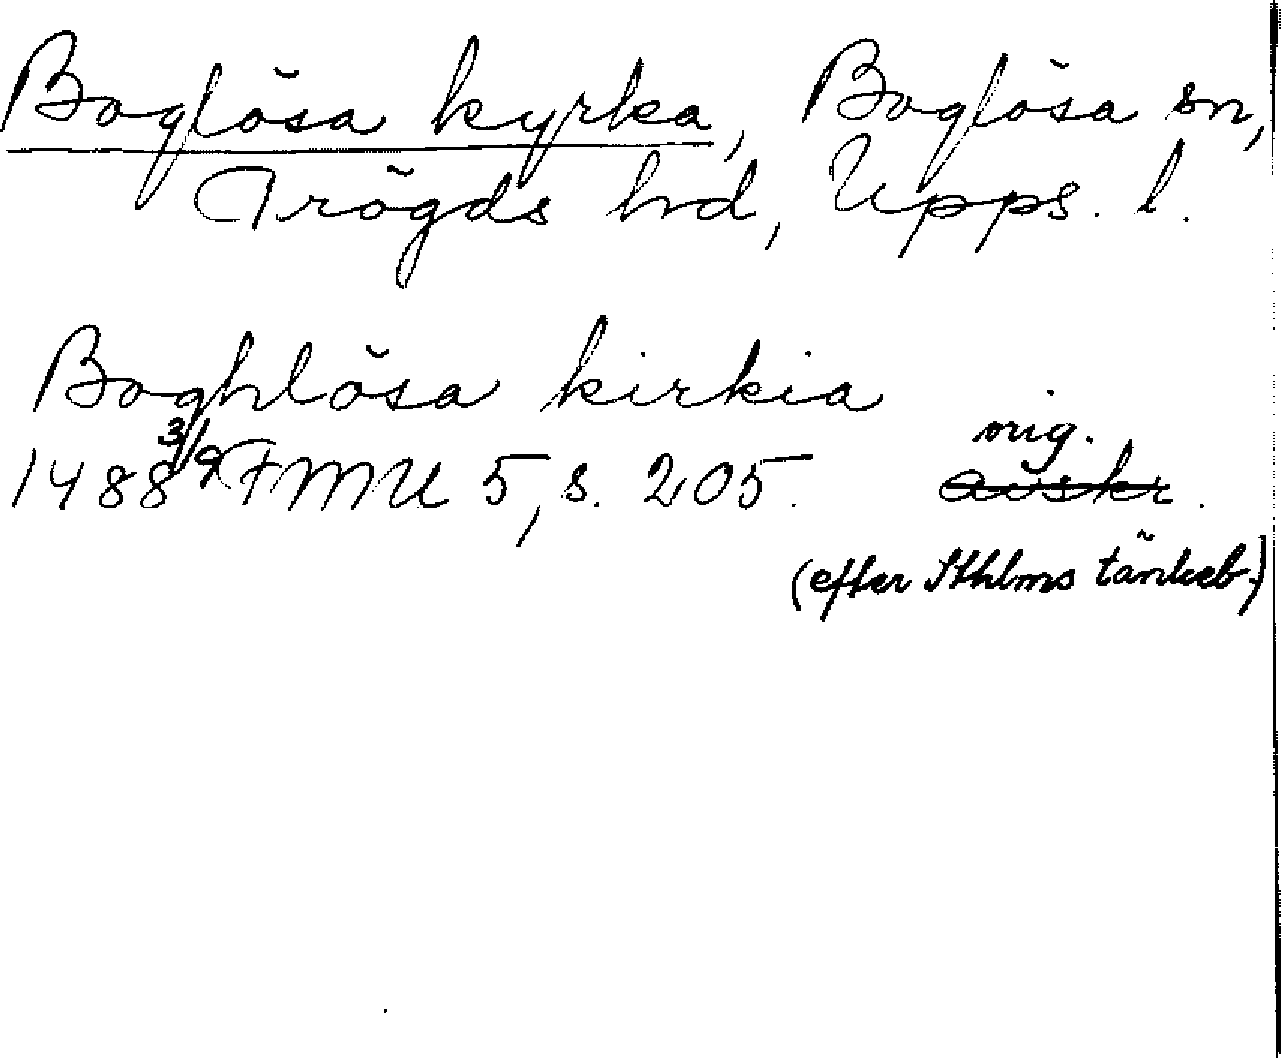 Boglösa kyrka, Boglösa sn,
Trögds hd, Upps. l.
Boghlösa kirkia
1488 3/9 FMU 5, s. 205. orig.
avskr.
(efter Sthlms tänkeb.)